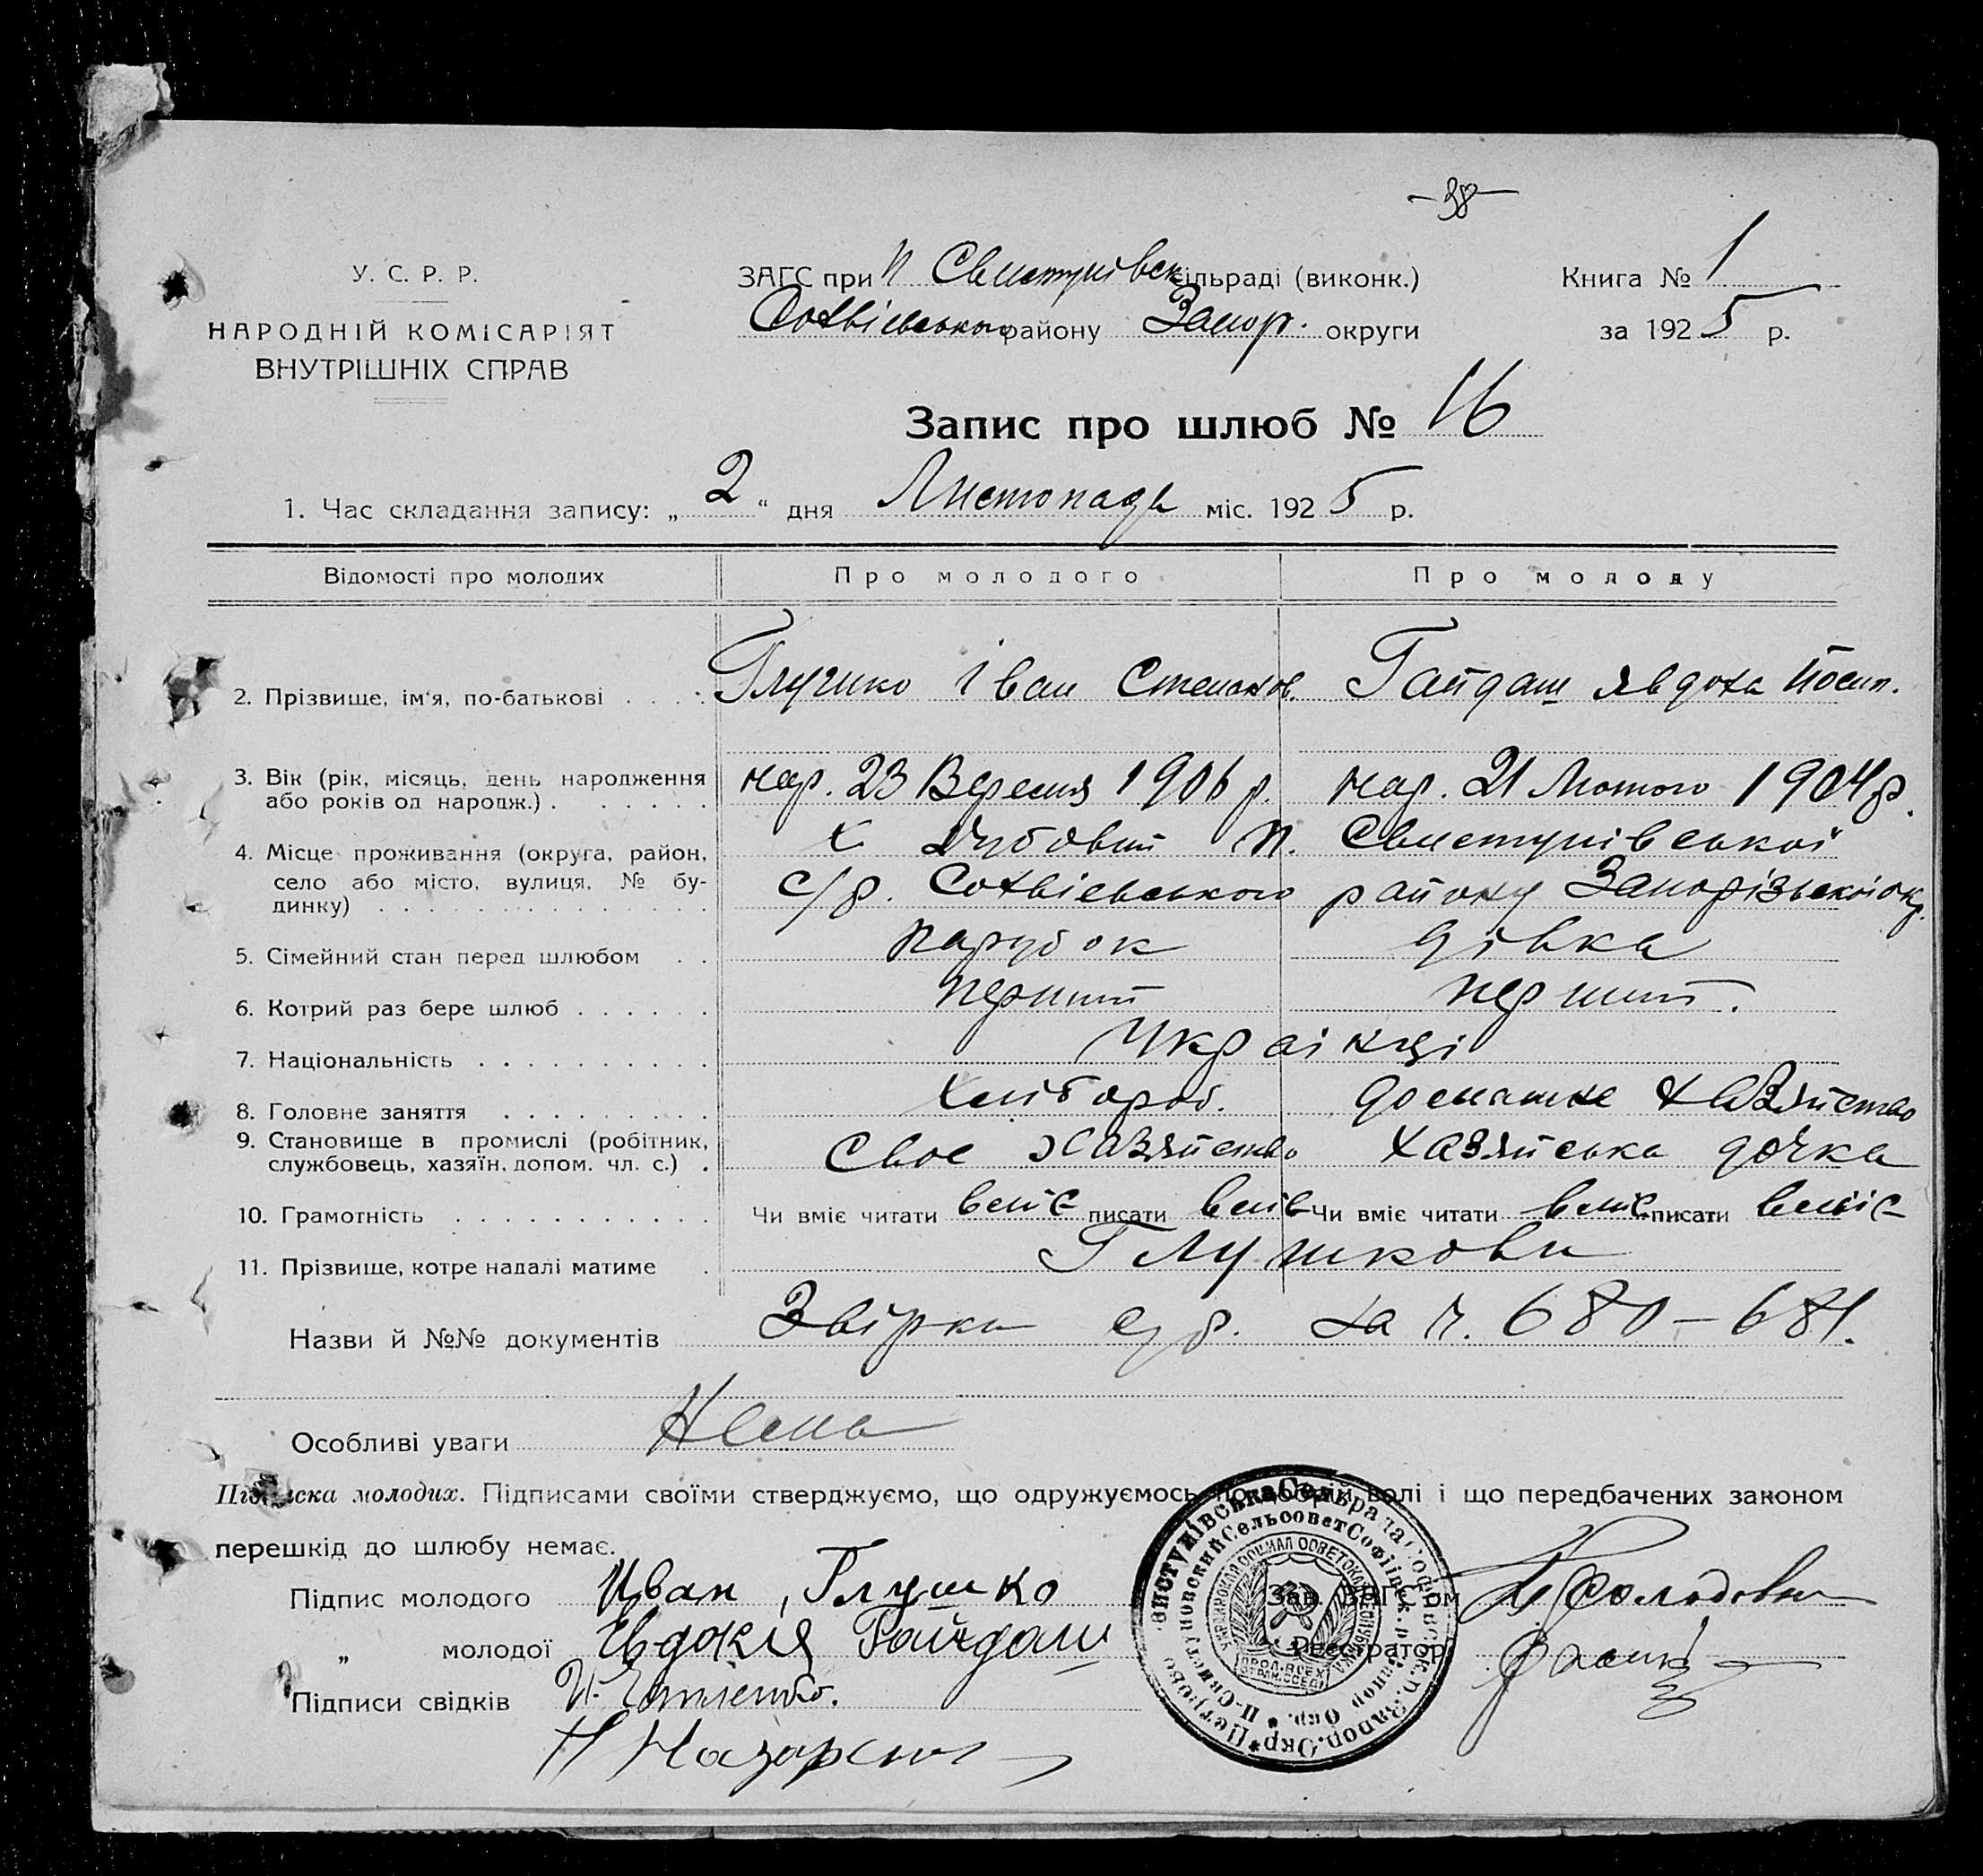 -38-
У. С. Р. Р.
НАРОДНІЙ КОМІСАРІЯТ
ВНУТРІШНІХ СПРАВ
ЗАГС при П Свистунівськ сільраді (виконк.)
Софіевського району Запор. округи
Книга № 1
за 1925 р.
Запис про шлюб № 16
1. Час складання запису: „ 2 “ дня Листопада міс. 1925 р.
Відомості про молодих Про молодого Про молоду
2. Прізвище, ім'я, по-батькові . . . . Глушко Іван Степанов. Гайдаш Явдоха Йосип.
3. Вік (рік, місяць, день народження нар. 23 Вересня 1906 р. нар. 21 Лютого 1904 р.
або років од народж.) . . . . . . .
4. Місце проживання (округа, район, х Дубовий П. Свистунівської
село або місто, вулиця, № бу- с/р. Софіевського району Запорізької окр.
динку) . . . . . . . . . . . . . .
5. Сімейний стан перед шлюбом . . парубок дівка
6. Котрий раз бере шлюб . . . . . . перший перший.
7. Національність . . . . . . . . . . Українці
8. Головне заняття . . . . . . . . . Хлібороб. домашне хазяйство
9. Становище в промислі (робітник, Свое хазяйство хазяйська дочка
службовець, хазяїн, допом. чл. с.) .
10. Грамотність . . . . . . . . . . . . Чи вміє читати вміє писати вміє Чи вміє читати вміє писати вміє
11. Прізвище, котре надалі матиме . Глушкови
Назви й №№ документів Звірка с/р. за ч. 680-681.
Особливі уваги Нема
Підписка молодих. Підписами своїми стверджуємо, що одружуємось по добрій волі і що передбачених законом
перешкід до шлюбу немає.
Підпис молодого Иван Глушко
„ молодої Євдокія Гайдаш
Підписи свідків
Н Назаренко
Зав. ЗАГС'ом
Реєстратор